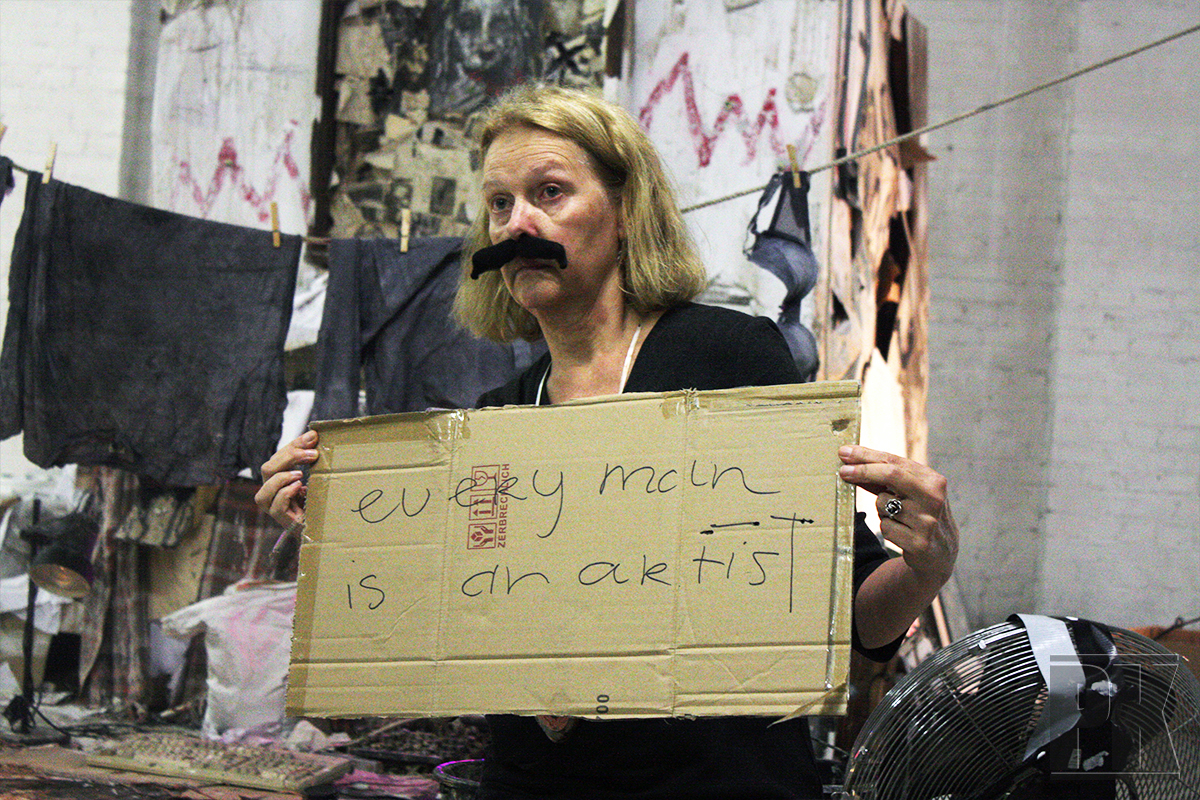 every man
is an artist
ZERBRECHLICH
00